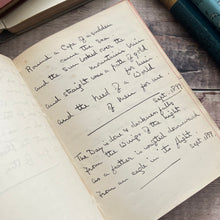 Round a Cape of a sudden
came the sea
and the sun looked over
the mountains brim
and straight was a path of gold
for him
and the need of a world
of men for me
Sept. 1899
The Day is done & darkness falls
from the wings of the night
as a feather is wafted downward
from an eagle in its flight
Sept. 1899